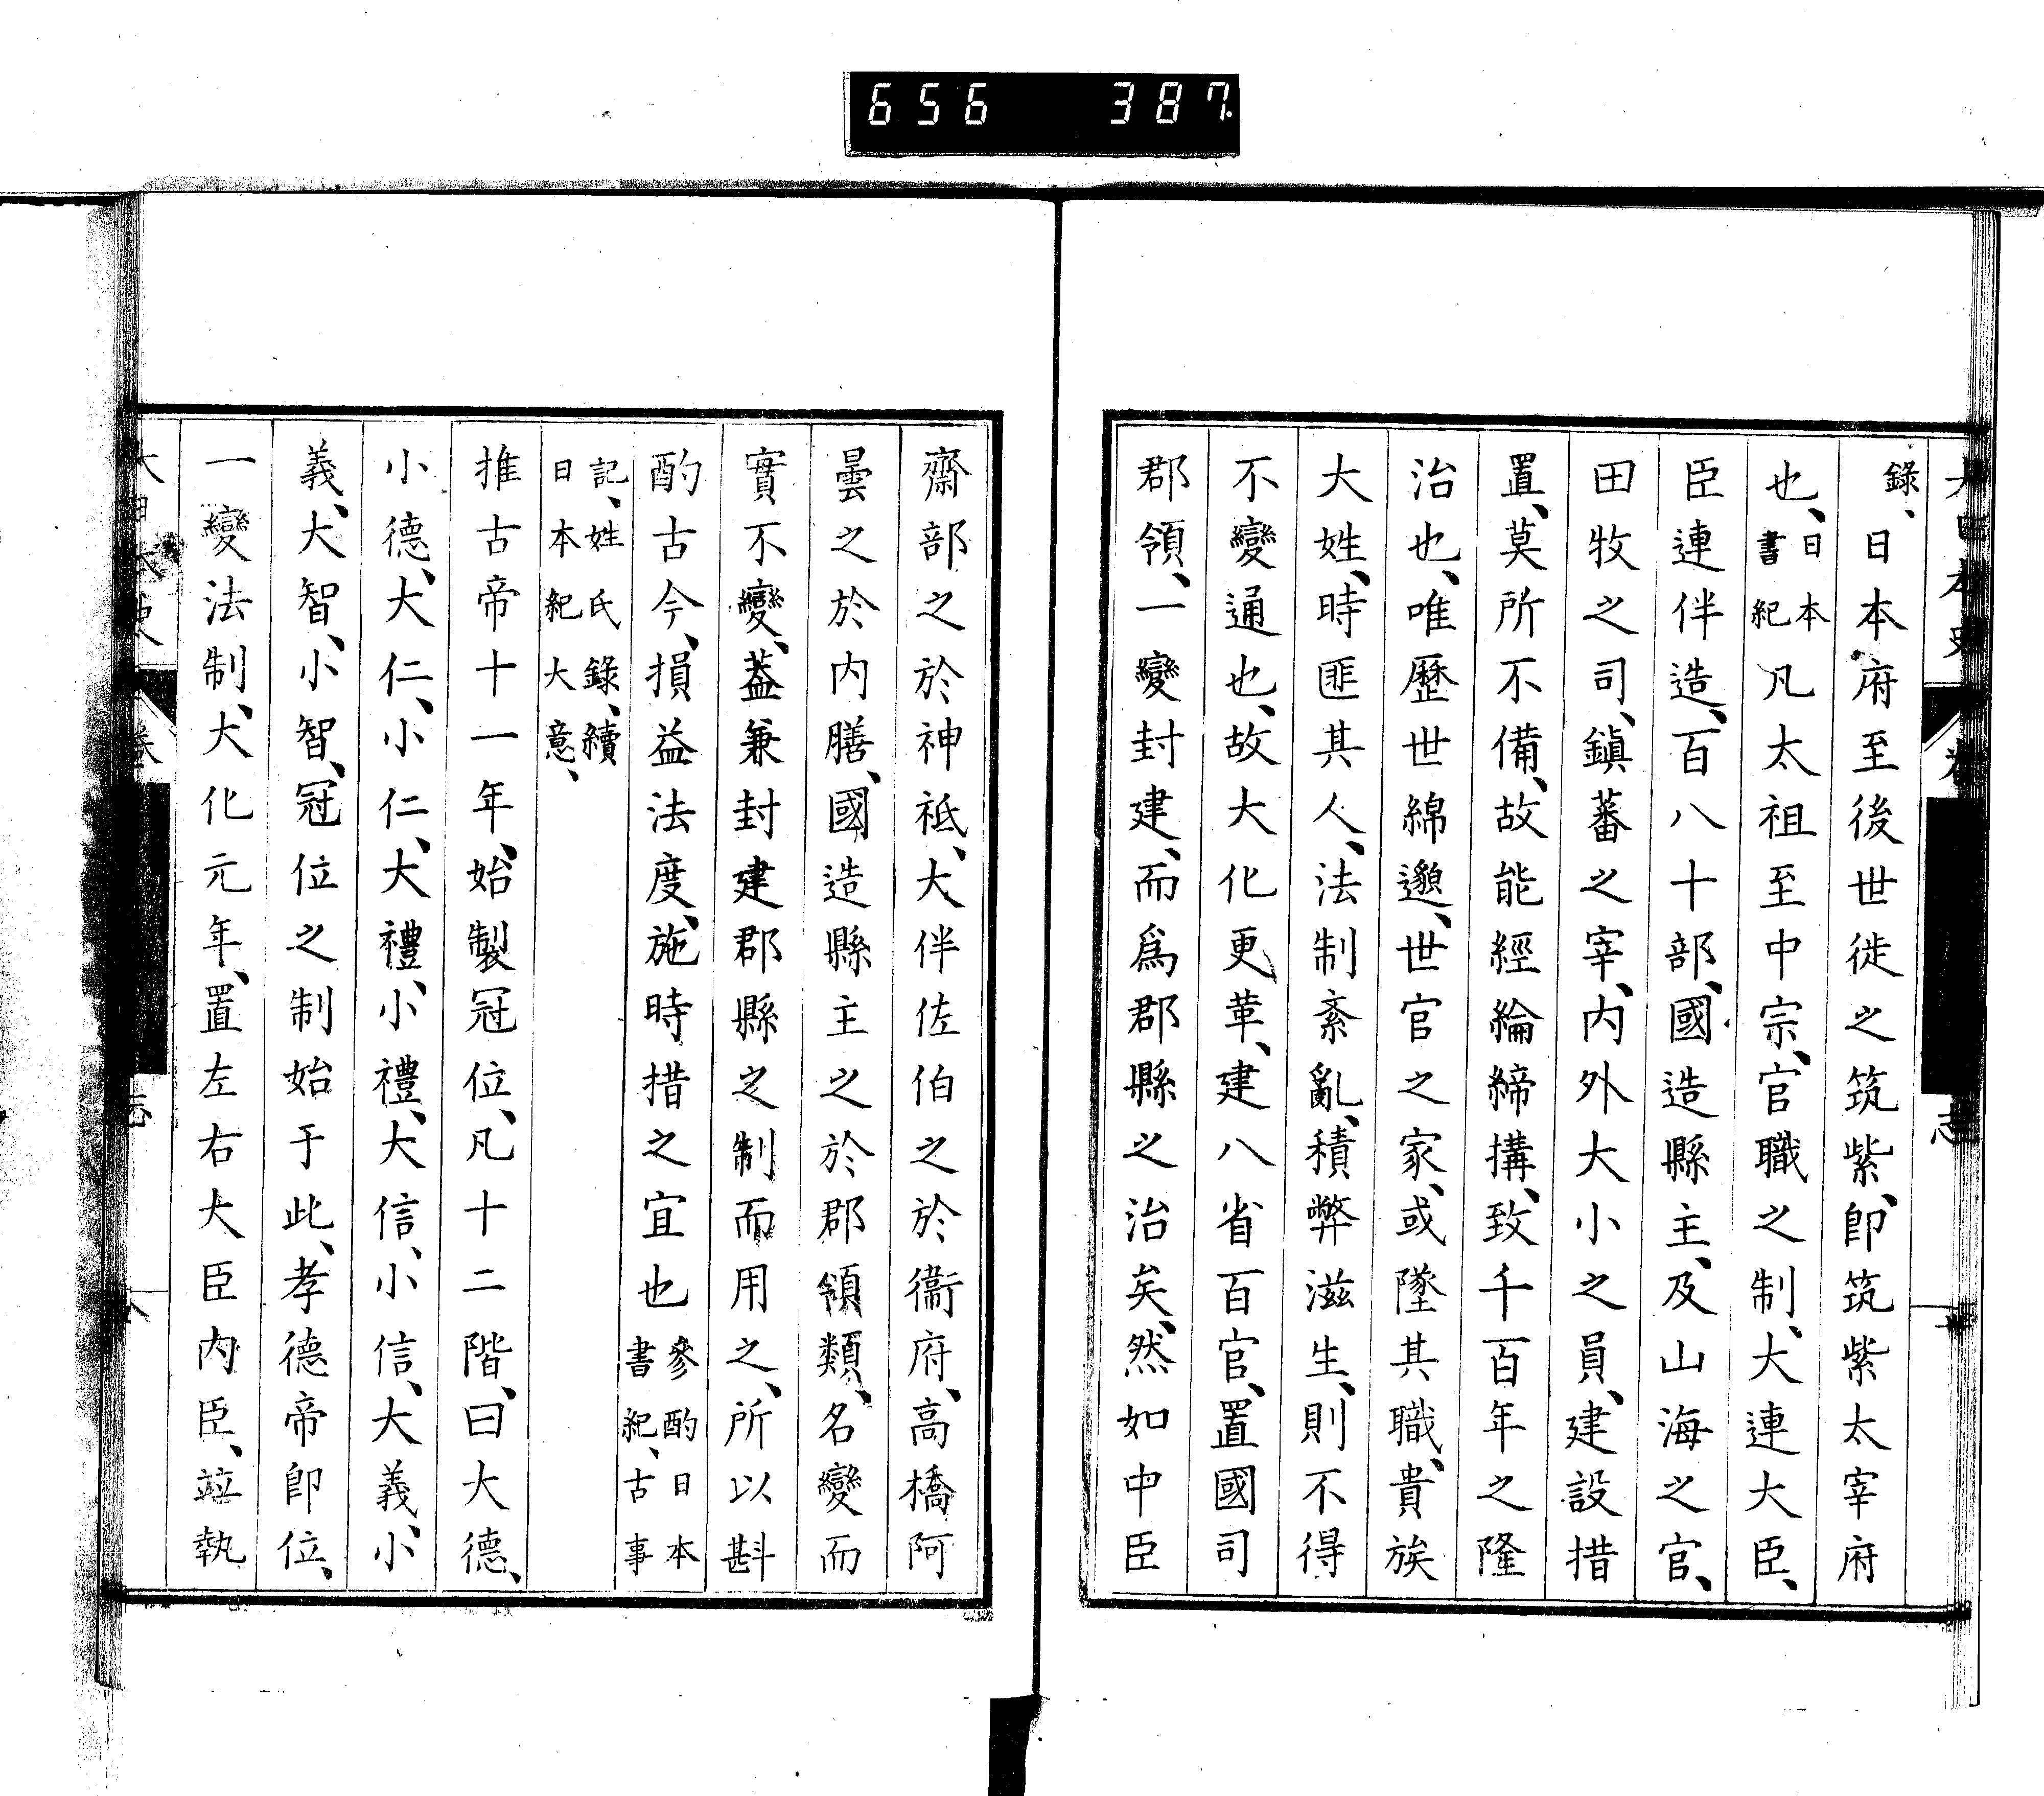 656 387.
錄、日本府至後世徙之筑紫、卽筑紫太宰府
也、日本書紀凡太祖至中宗、官職之制、大連大臣、
臣連伴造、百八十部、國造縣主、及山海之官、
田牧之司、鎭蕃之宰、內外大小之員、建設措
置、莫所不備、故能經綸締搆、致千百年之隆
治也、唯歷世綿邈、世官之家、或墜其職、貴族
大姓、時匪其人、法制紊亂、積弊滋生、則不得
不變通也、故大化更革、建八省百官、置國司
郡領、一變封建、而爲郡縣之治矣、然如中臣
齋部之於神祇、大伴佐伯之於衞府、高橋阿
曇之於內膳、國造縣主之於郡領類、名變而
實不變、蓋兼封建郡縣之制而用之、所以斟
酌古今、損益法度、施時措之宜也參酌日本書紀、古事
記、姓氏錄、續日本紀大意、
推古帝十一年、始製冠位、凡十二階、曰大德、
小德、大仁、小仁、大禮、小禮、大信、小信、大義、小
義、大智、小智、冠位之制始于此、孝德帝卽位、
一變法制、大化元年、置左右大臣內臣、竝執